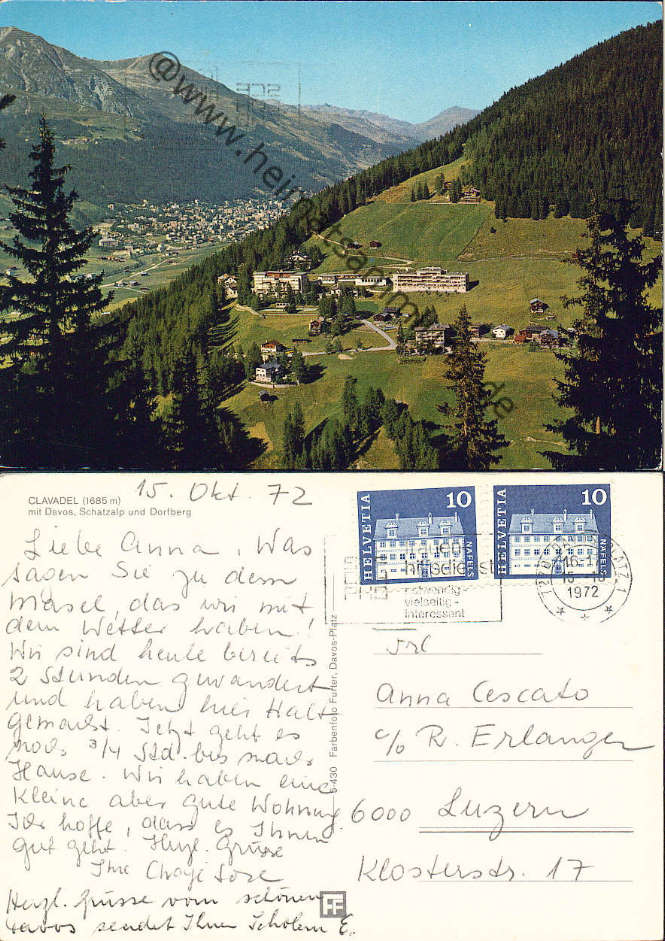 @www.heimatsammlung.de
CLAVADEL (1685 m)
mit Davos, Schatzalp und Dorfberg
15. Okt. 72
Liebe Anna, Was
sagen Sie zu dem
Masel, das wir mit
dem Wetter haben!
Wir sind heute bereits
2 Stunden gewandert
und haben hier Halt
gemacht. Jetzt geht es
noch 3/4 Std. bis nach
Hause. Wir haben eine
kleine aber gute Wohnung.
Ich hoffe, dass es Ihnen
gut geht. Herzl. Grüsse
Ihre
Herzl. Grüsse vom schönen
Davos sendet Ihnen Scholem E.
5-430 Farbenfoto Furter, Davos-Platz
FF
HELVETIA 10 NÄFELS
HELVETIA 10 NÄFELS
hilfsdienst
notwendig -
vielseitig -
interessant
1972
Frl
Anna Cescato
c/o R. Erlanger
6000 Luzern
Klosterstr. 17